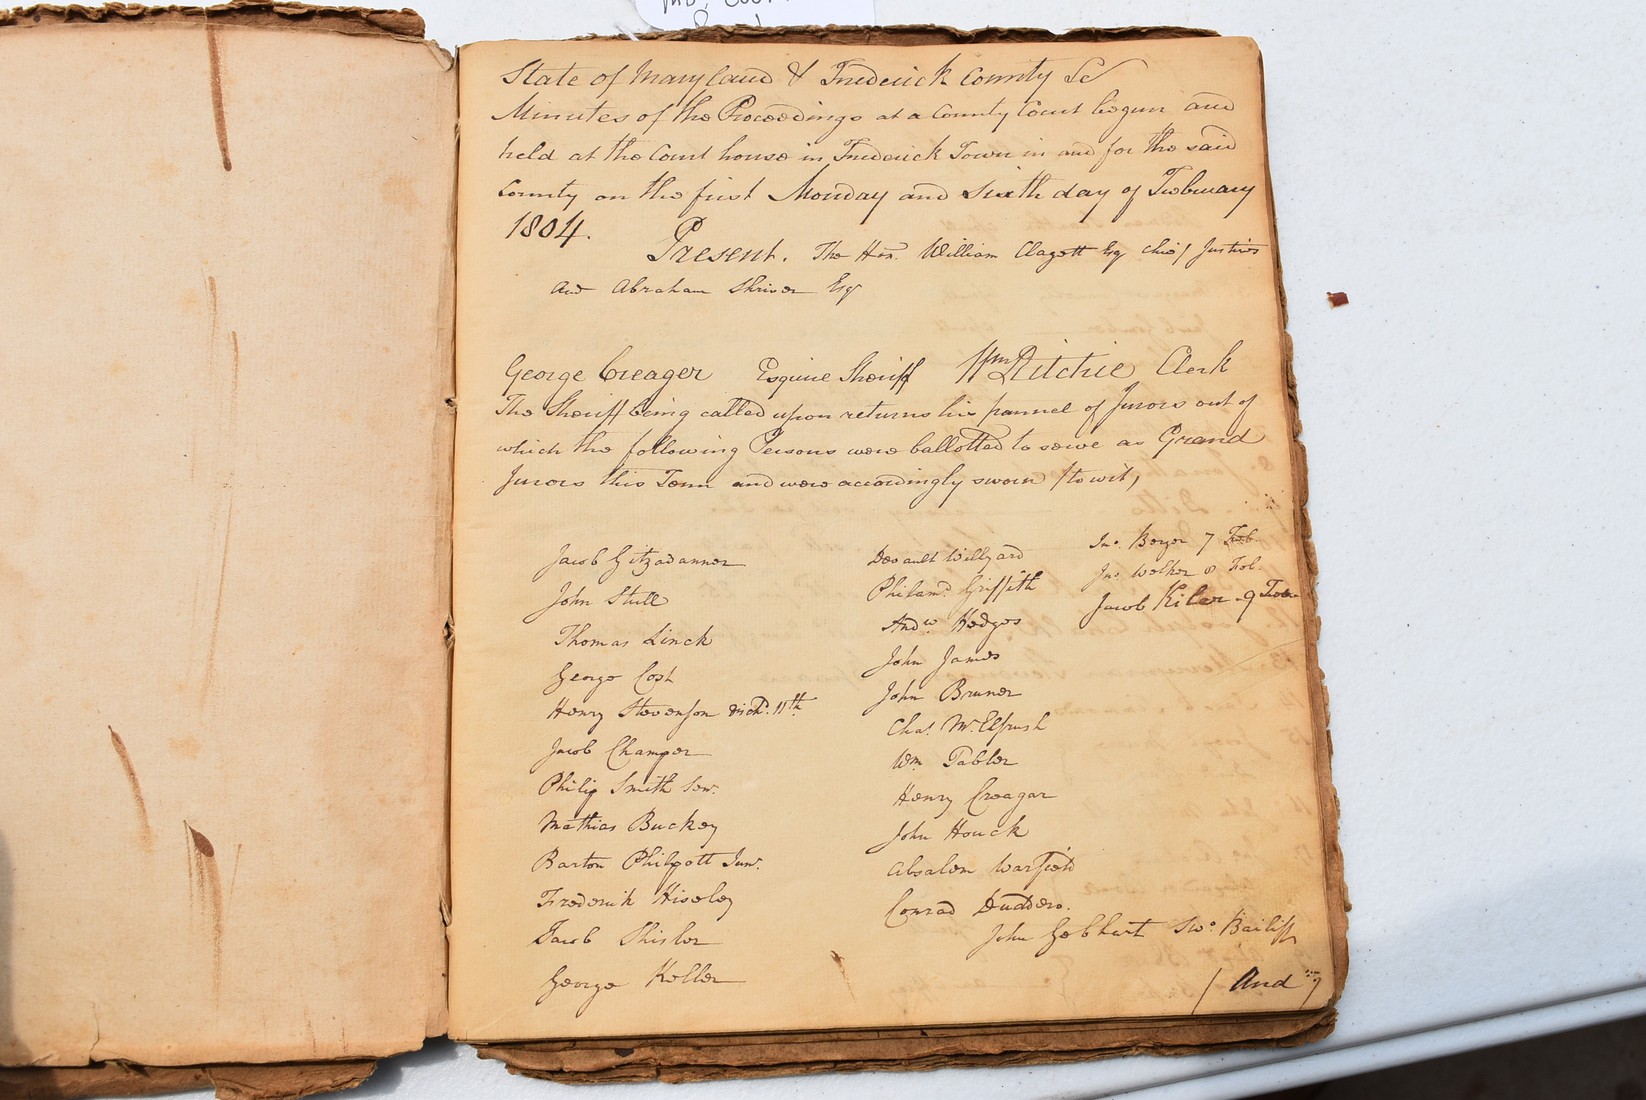 State of Maryland & Frederick County Sc
Minutes of the Proceedings at a County Court begun and
held at the Court house in Frederick Town in and for the said
County on the first Monday and Sixth day of February
1804.
Present. The Hon. William Clagett Esq Chief Justice
and Abraham Shriver Esqr
George Creager Esquire Sheriff Wm Ritchie Clerk
The Sheriff being called upon returns his pannel of Jurors out of
which the following Persons were ballotted to serve as Grand
Jurors this Term and were accordingly sworn /towit,
Jacob Fitzadanner
John Stull
Thomas Linck
George Cost
Henry Stevenson disch. 11th
Jacob Champer
Philip Smith Senr.
Mathias Buckey
Barton Philpott Junr.
Frederick Hiseley
Jacob Shisler
George Keller
Devault Willyard
Philemd. Griffith
Andw. Hedges
John James
John Bruner
Chas. McElfresh
Wm. Tabler
Henry Creagar
John Houck
Absalom Warfield
Conrad Dudders.
John Gebhart Swo. Bailiff
Jno. Boyer 7 Feb.
Jno. Walker 8 Feb.
Jacob Kiler 9 Feb
/ And